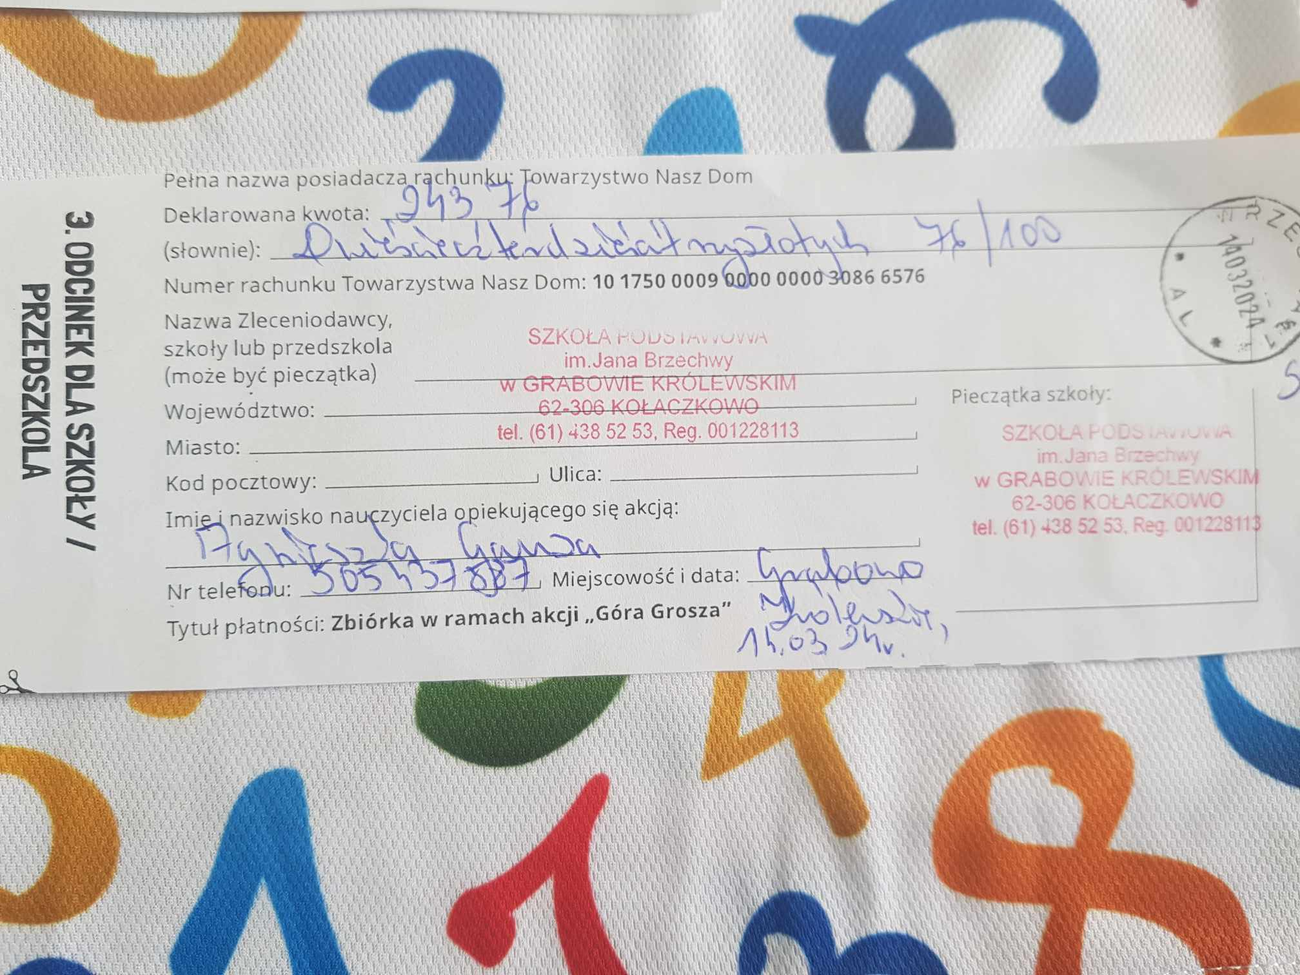 3. ODCINEK DLA SZKOŁY /
PRZEDSZKOLA
Pełna nazwa posiadacza rachunku: Towarzystwo Nasz Dom
Deklarowana kwota: 243 76
(słownie): Dwieścieczterdzieścitrzyzłotych 76/100
Numer rachunku Towarzystwa Nasz Dom: 10 1750 0009 0000 0000 3086 6576
Nazwa Zleceniodawcy,
szkoły lub przedszkola
(może być pieczątka)
SZKOŁA PODSTAWOWA
im.Jana Brzechwy
w GRABOWIE KRÓLEWSKIM
62-306 KOŁACZKOWO
tel. (61) 438 52 53, Reg. 001228113
Województwo:
Miasto:
Kod pocztowy: Ulica:
Imię i nazwisko nauczyciela opiekującego się akcją:
Agnieszka
Nr telefonu: 505437887 Miejscowość i data: Grabowo
Królewskie,
14.03.24r.
Tytuł płatności: Zbiórka w ramach akcji „Góra Grosza”
Pieczątka szkoły:
SZKOŁA PODSTAWOWA
im.Jana Brzechwy
w GRABOWIE KRÓLEWSKIM
62-306 KOŁACZKOWO
tel. (61) 438 52 53, Reg. 001228113
14032024